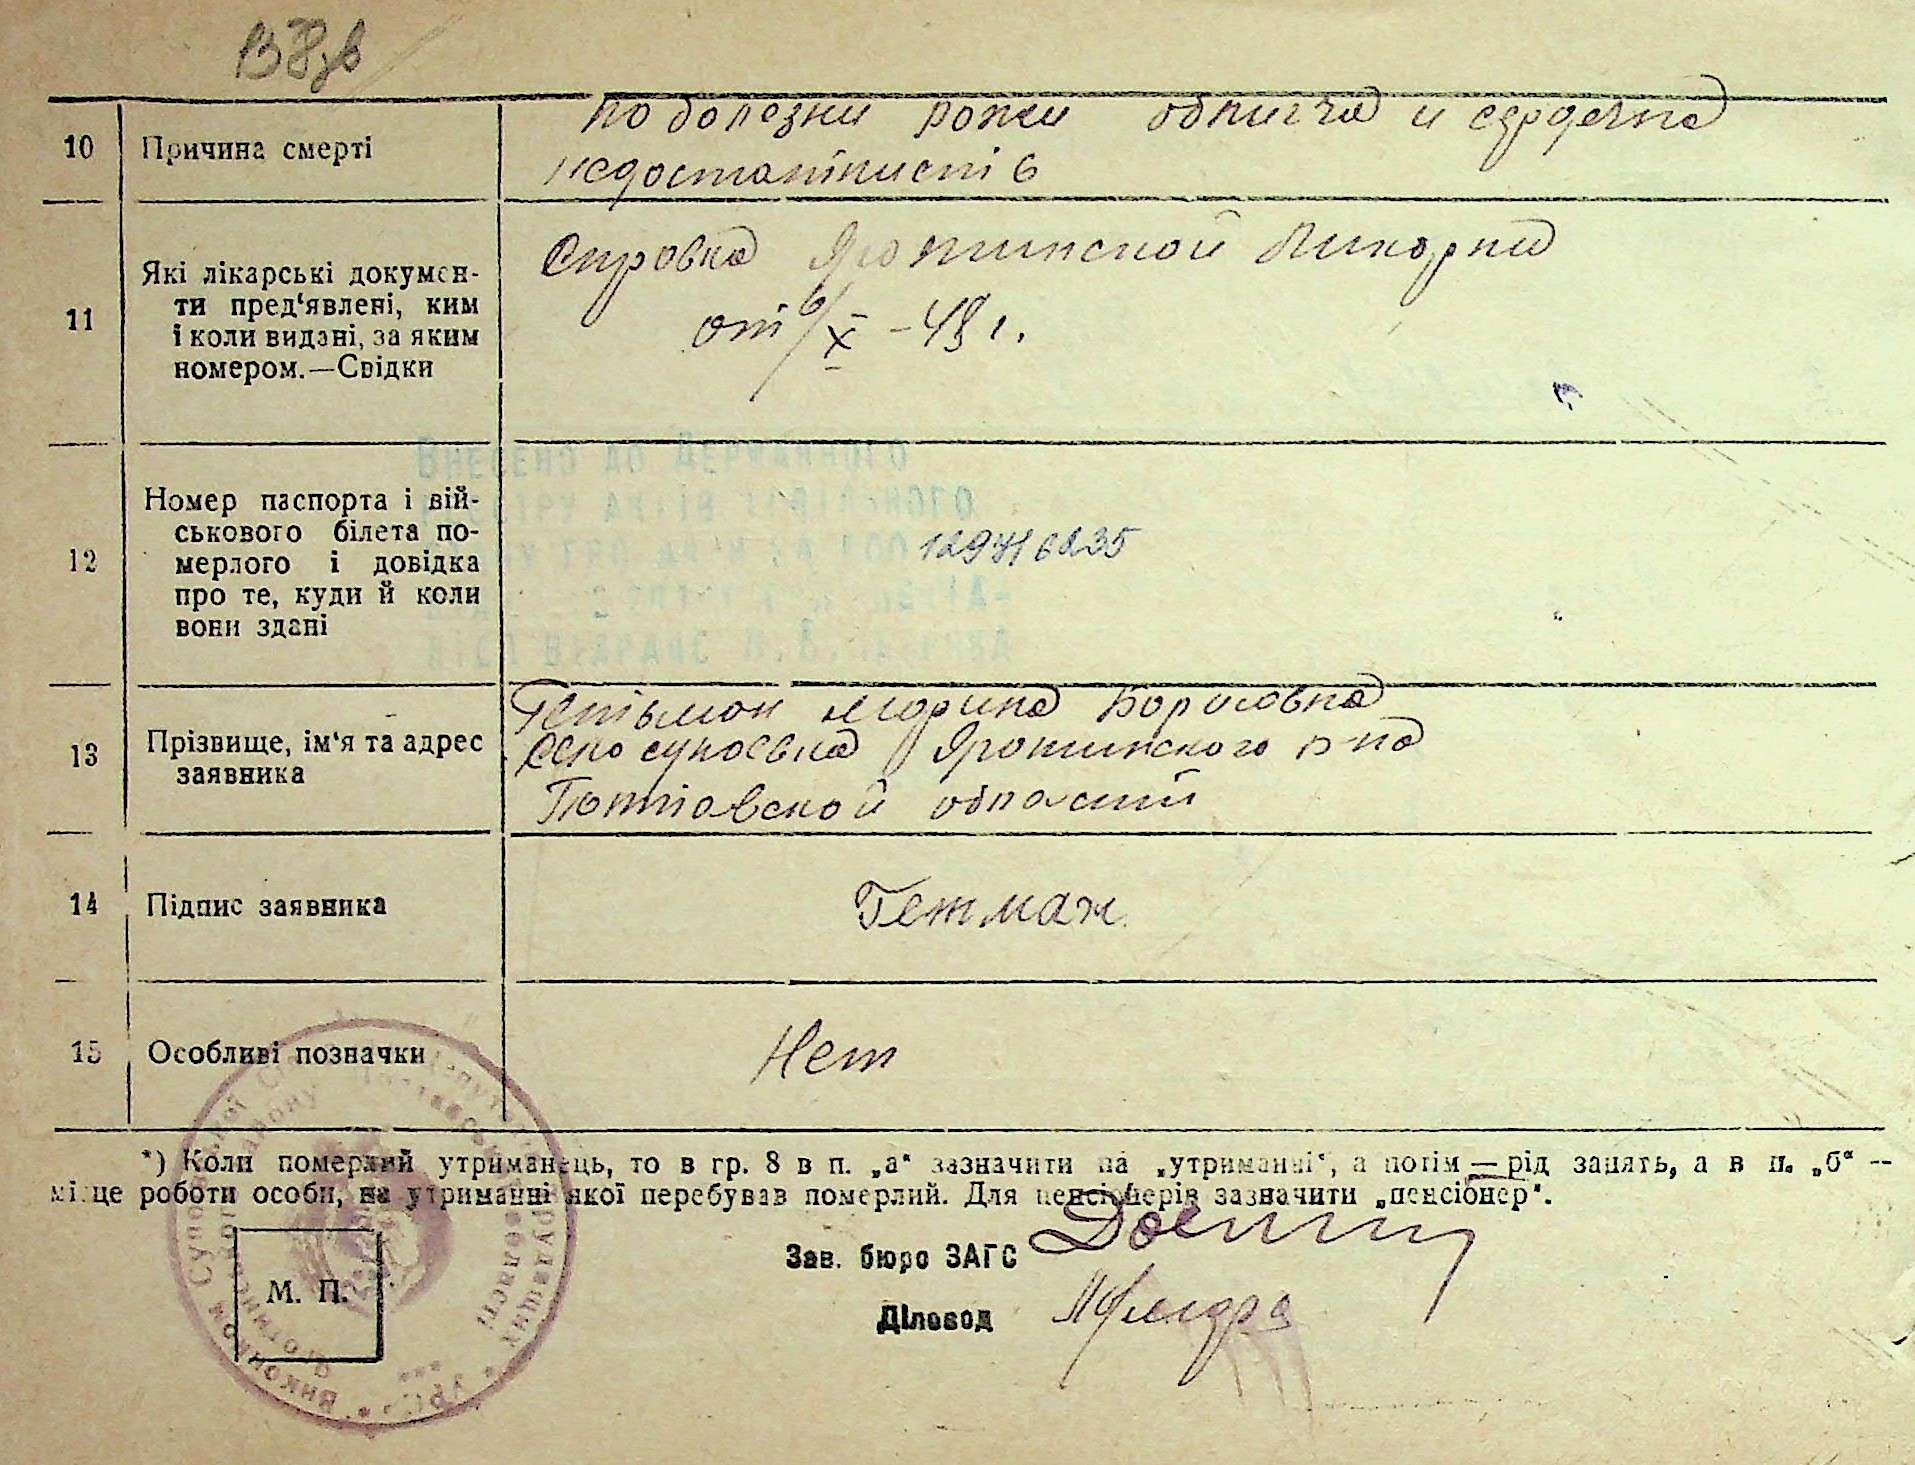 10 Причина смерті
по болезни рожи облича и сердечна
недостатність
11 Які лікарські докумен-
ти пред‘явлені, ким
і коли видані, за яким
номером.—Свідки
Справка Яготинской Ликарни
от 6/X – 48 г.
12 Номер паспорта і вій-
ськового білета по-
мерлого і довідка
про те, куди й коли
вони здані
Внесено до Державного
13 Прізвище, ім‘я та адрес
заявника
Гетьман Марина Борисовна
Село Супоевка Яготинского р-на
Полтавской области
14 Підпис заявника
Гетман
15 Особливі позначки
Нет
*) Коли померлий утриманець, то в гр. 8 в п. „а“ зазначити на „утриманні“, а потім — рід занять, а в п. „б“ —
місце роботи особи, на утриманні якої перебував померлий. Для пенсіонерів зазначити „пенсіонер“.
М. П.
Зав. бюро ЗАГС
Діловод